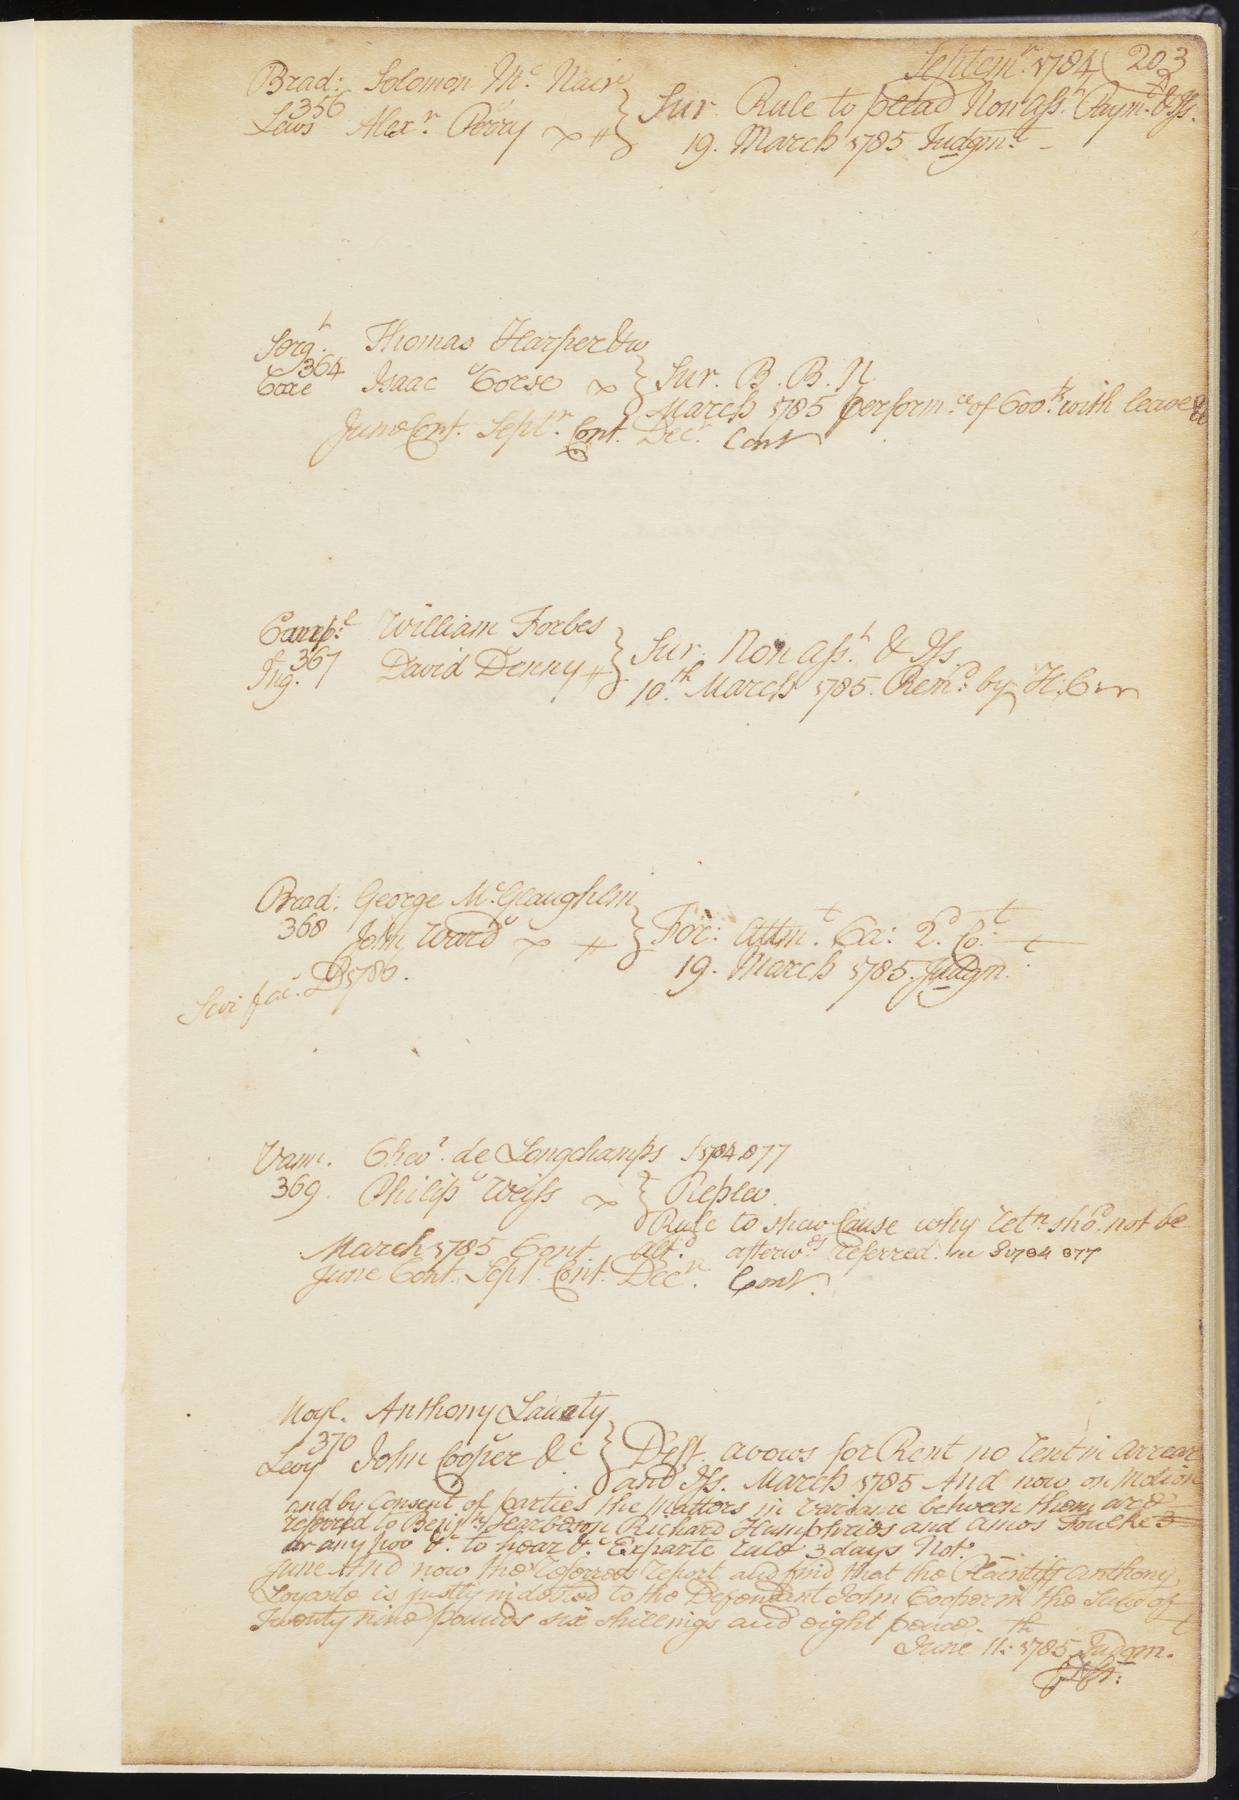 Septem.r 1784 (203
Brad: Solomon Mc. Nair
356
Lews Alexr. Perry } Sur. Rule to plead Non Asst. Paymt. & Iss.
19. March 1785 Judgmt.
Sergt. Thomas Harper &w
364
Coxe Isaac Corse } Sur. B. B. N
March 1785 performce. of Covts. with leave &c
June Cont. Septr. Cont. Decr. Cont
Campl. William Forbes
367
Ing. David Denny } Sur. Non Asst. & Iss.
10th. March 1785. Remd. by H. C
Brad: George Mc.Glaughlin
368 John Ward } For: Attmt. Ca: 2d. Co:
19. March 1785. Judgmt.
Sci fac. D 1786.
Vann. Chevr. de Longchamps S 1784.877
369 Philip Weiss } Replev.
Rule to shew Cause why retn. shod. not be
March 1785 Cont afterwds. referred. S 1784 877
June Cont. Sept. Cont. Decr. Cont.
Moyl. Anthony Lauaty
370
Levy John Cooper &c } Deft. avows for Rent no rent in arrear
and Iss. March 1785 And now on Motion
and by Consent of parties the matters in variance between them are
referred to Benjn. Richard Humphries and Amos Foulke 3
or any two &c. to hear &c. Exparte rule 3 days Not.
June And now the referees report and find that the Plaintiff Anthony
Loyaute is justly indebted to the Defendant John Cooper in the Sum of
Twenty nine pounds six shillings and eight pence.
June 11th: 1785 Judgmt.